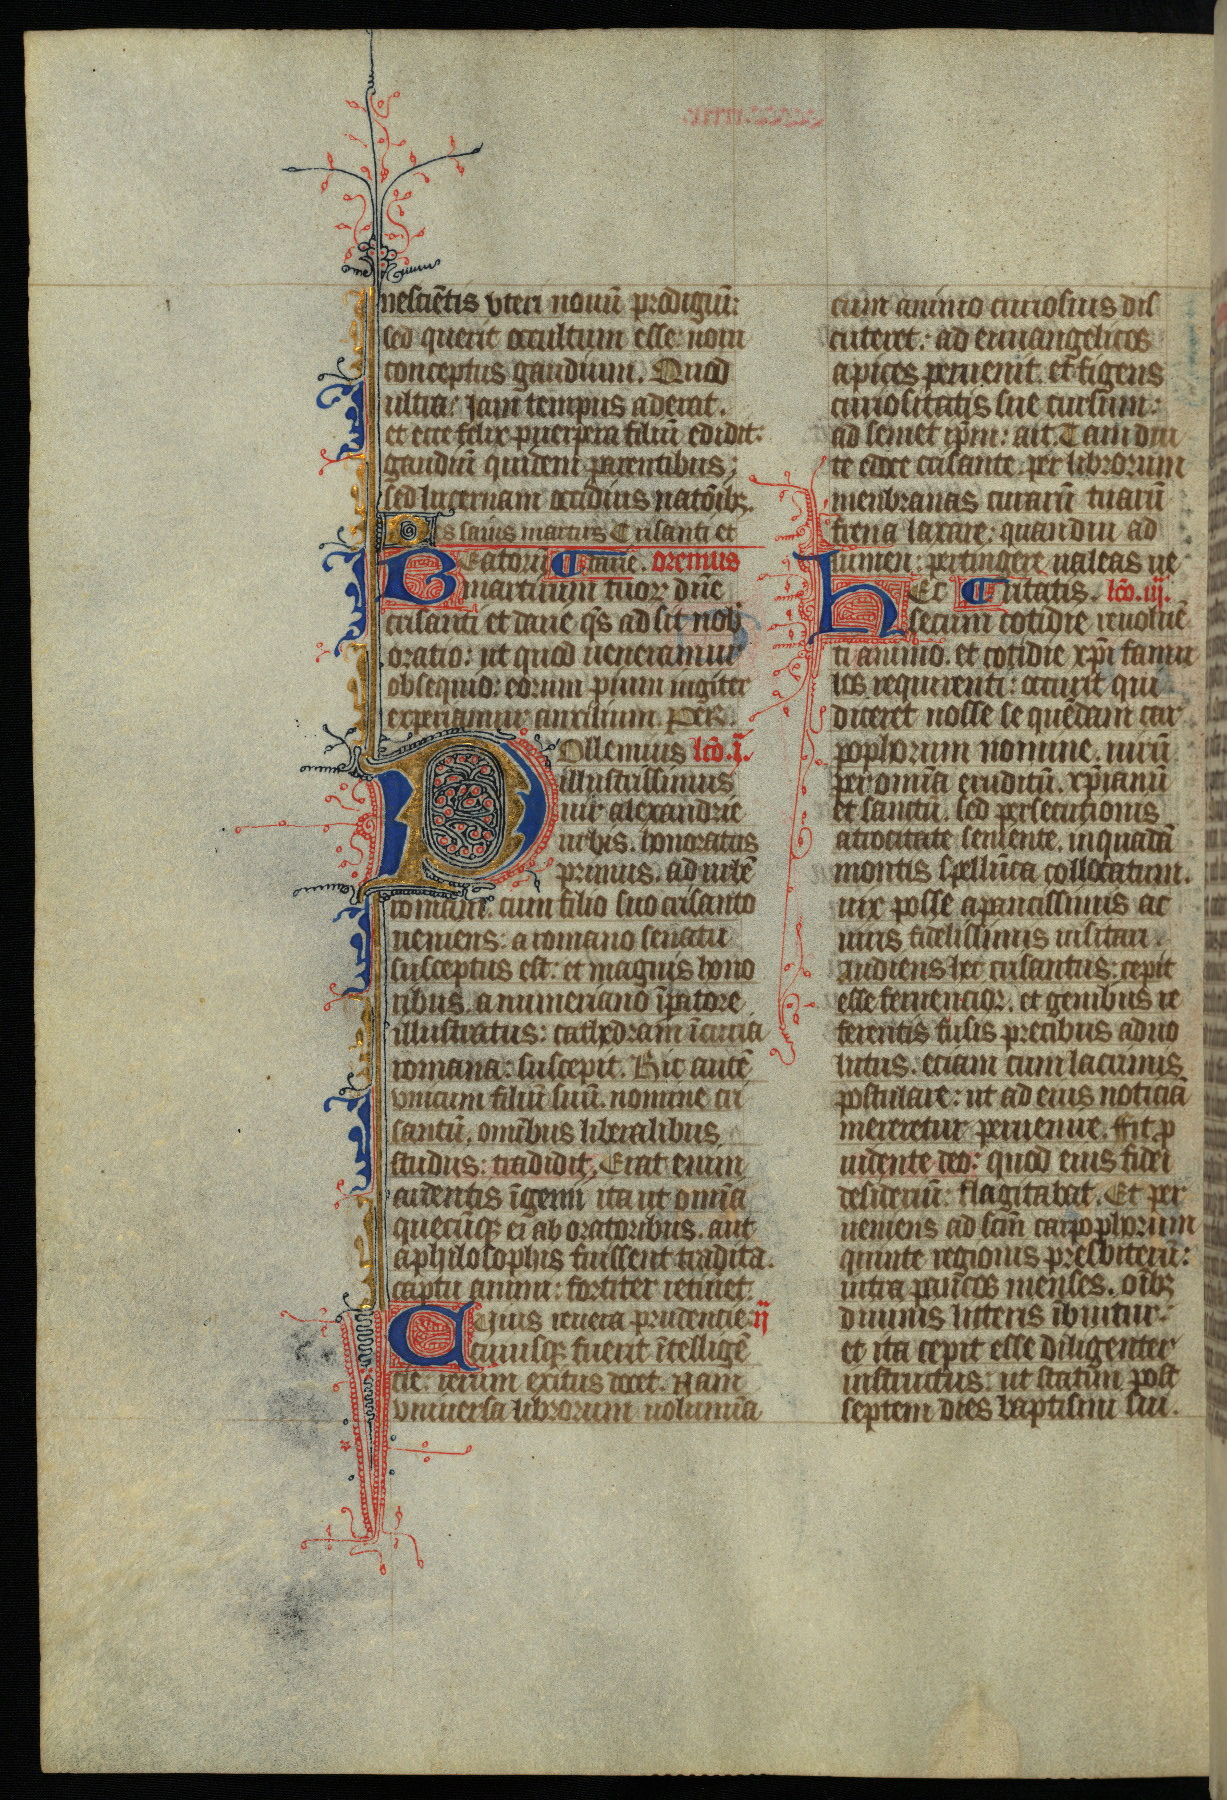 nesciētis vteri nouū prodigiū:
sed querit occultum esse: nom
conceptus gaudium. Quod
ultra: Jam tempus aderat.
et ecce felix puerpera filiū edidit:
gaudiū quidem parentibus;
sed lucernam occiduis natōibꝫ.
martiris Crisanti et
Beatorū Darie. oremus
martirum tuoꝝ dn̄e
crisanti et darie q̄s ad sit nob̄
oratio: ut quod ueneramur
obsequio: eorum pium iugiter
experiamur auxilium. Per.
Pollemius lc̄o. ī.
illustrissimus
uir alexandrie
urbis. honoratus
primus. ad urbē
romam. cum filio suo crisanto
ueniens: a romano senatu
susceptus est: et magnis hono
ribus. a numeriano īp̄atore
illustratus: cathedram ī curia
romana: suscepit. Hic autē
vnicum filiū suū. nomine cri
santū. omībus liberalibus
studiis: tradidit. Erat enim
ardentis īgenii ita ut omīa
quecūqꝫ ei ab oratoribus. aut
a philosophis fuissent tradita.
captu animi: fortiter retinet.
Cuius reuera prudencie: ij
cuiusqꝫ fuerit ītelligē
cie: rerum exitus docet. Nam
vniuersa librorum uolumīa
cum animo curiosius dis
cuteret: ad euuangelicos
apices peruenit. et figens
curiositatis sue cursum:
ad semet ip̄m: ait. Tam diu
te decet crisante. per librorum
menbranas curarū tuarū
frena laxare: quandiu ad
lumen: pertingere ualeas ue
Hec ritatis. lc̄o. iij.
secum cotidie reuoluē
ti animo. et cotidie xp̄i famu
los requirenti: occurit qui
diceret nosse se quēdam car
pophorum nomine. uirū
per omīa eruditū. xp̄ianū
et sanctū. sed persecutionis
atrocitate seuiente. in quadā
montis spelūca collocatum.
uix posse a paucissimis ac
uiris fidelissimis uisitari.
Audiens hec crisantus: cepit
esse feruencior. et genibus re
ferentis fusis precibus aduo
lutus. eciam cum lacrimis
postulare: ut ad eius noticiā
mereretur peruenire. Fit ꝓ
uidente deo: quod eius fidei
desideriū: flagitabat. Et per
ueniens ad sc̄m carpophorum
quinte regionis presbiterū:
intra paūcos menses. oīb̄ꝫ
diuinis litteris ībuitur:
et ita cepit esse diligenter
instructus: ut statim post
septem dies baptismi sui.